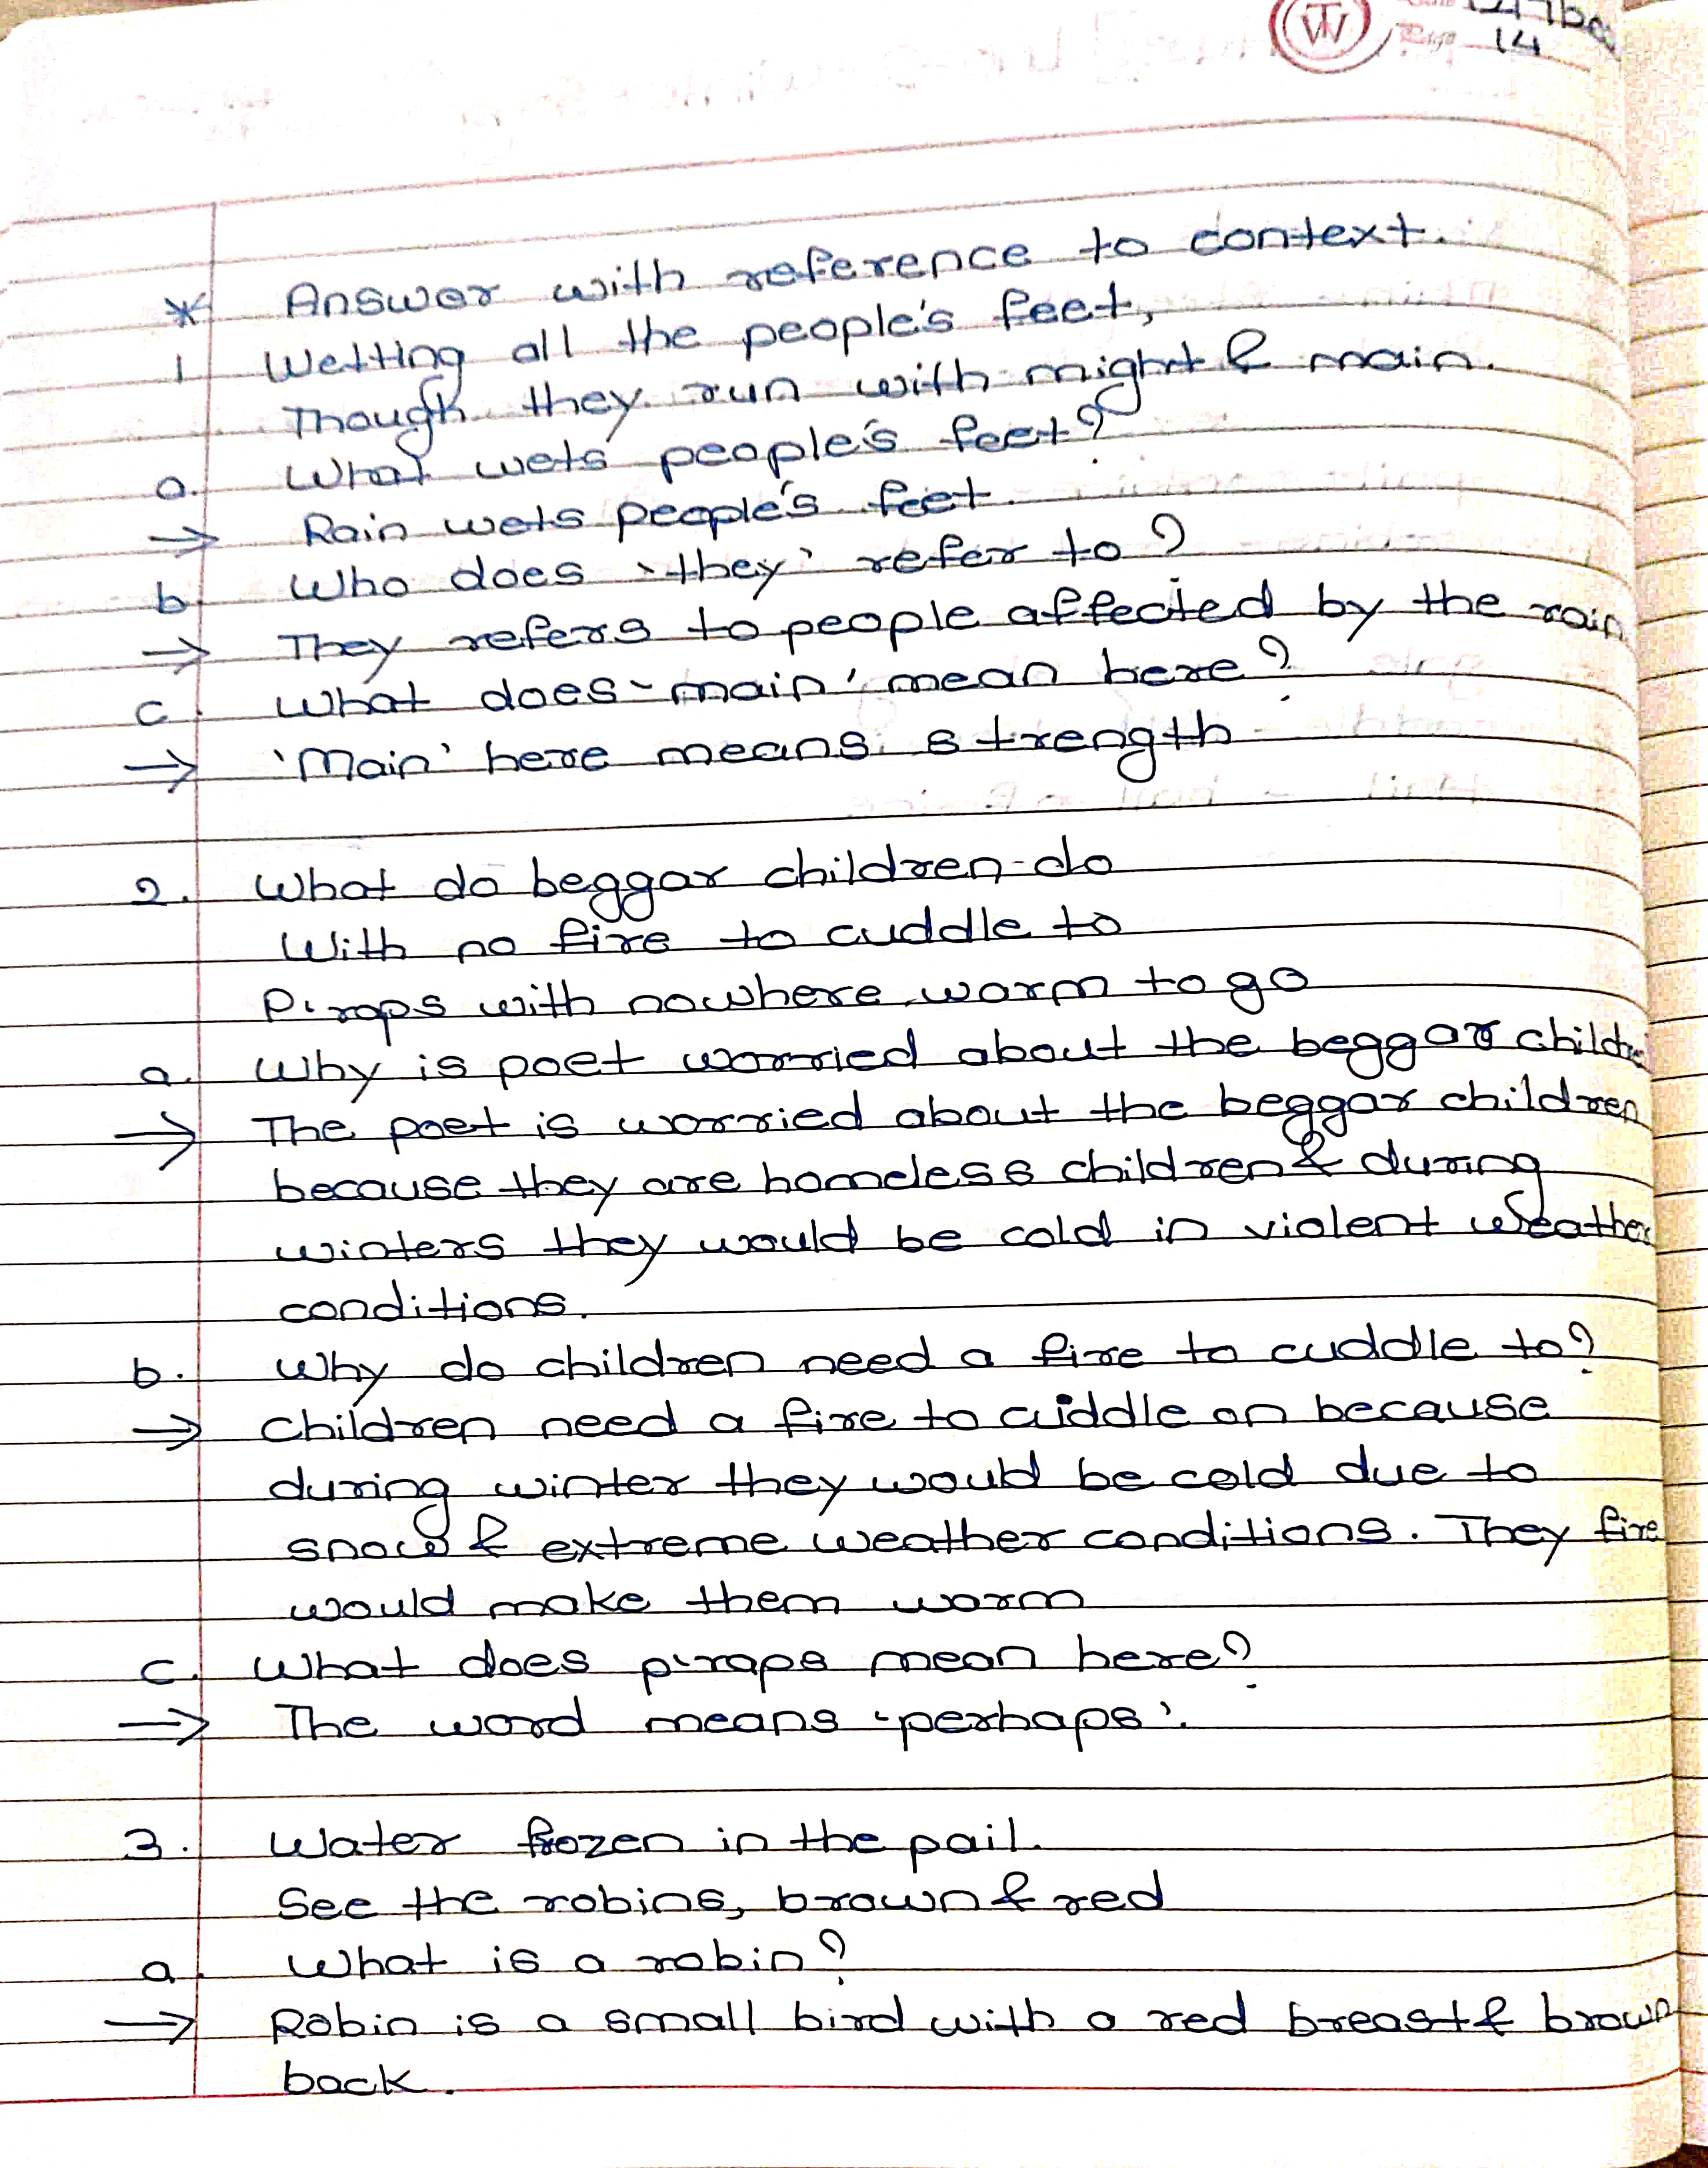 14
* Answer with reference to context.
1 Wetting all the people's feet,
Though they run with might & main.
a. What wets people's feet?
⇒ Rain wets people's feet.
b. Who does 'they' refer to?
⇒ They refers to people affected by the rain.
c. What does 'main' mean here?
⇒ 'Main' here means strength
2. What do beggar children do
With no fire to cuddle to
P'raps with nowhere warm to go
a. Why is poet worried about the beggar
⇒ The poet is worried about the beggar children
because they are homeless children & during
winters they would be cold in violent weather
conditions.
b. Why do children need a fire to cuddle to?
⇒ Children need a fire to cuddle on because
during winter they would be cold due to
snow & extreme weather conditions. They fire
would make them warm
c. What does p'raps mean here?
⇒ The word means 'perhaps'.
3. Water frozen in the pail.
See the robins, brown & red
a. What is a robin?
⇒ Robin is a small bird with a red breast & brown
back.